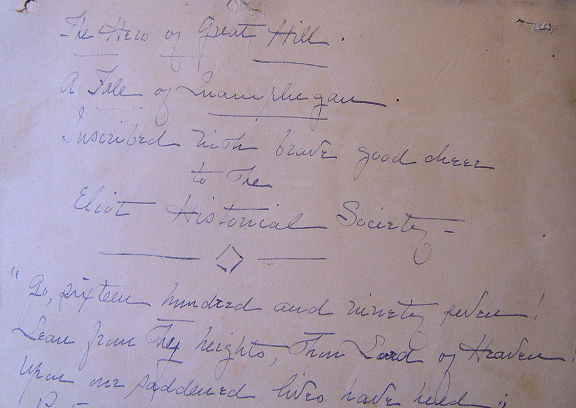 The Hero of Great Hill.
A Tale of Quamphegan.
Inscribed with brave good cheer
to The
Eliot Historical Society –
"Go, sixteen hundred and ninety seven!
Lean from Thy heights, Thou Lord of Heaven!
Upon our saddened lives have heed